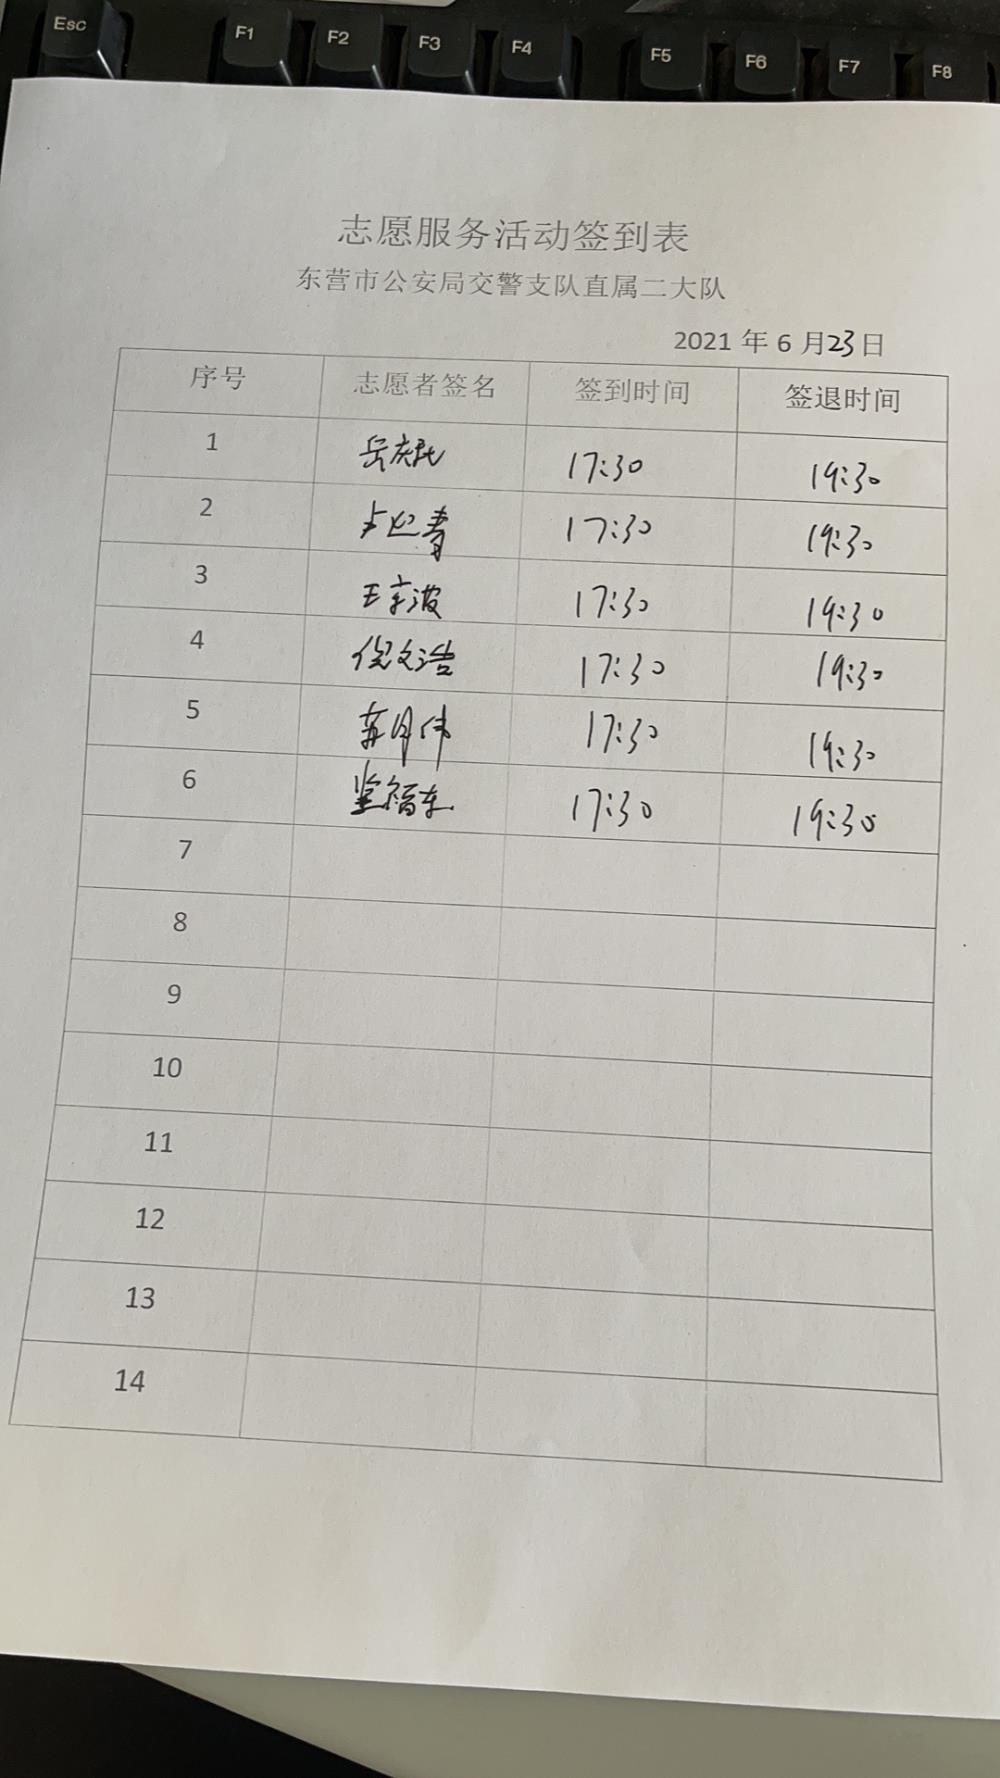 Esc F1 F2 F3 F4 F5 F6 F7 F8
志愿服务活动签到表
东营市公安局交警支队直属二大队
2021 年 6 月23日
序号 志愿者签名 签到时间 签退时间
1 岳庆民 17:30 19:30
2 17:30 19:30
3 17:30 19:30
4 倪文浩 17:30 19:30
5 17:30 19:30
6 17:30 19:30
7
8
9
10
11
12
13
14